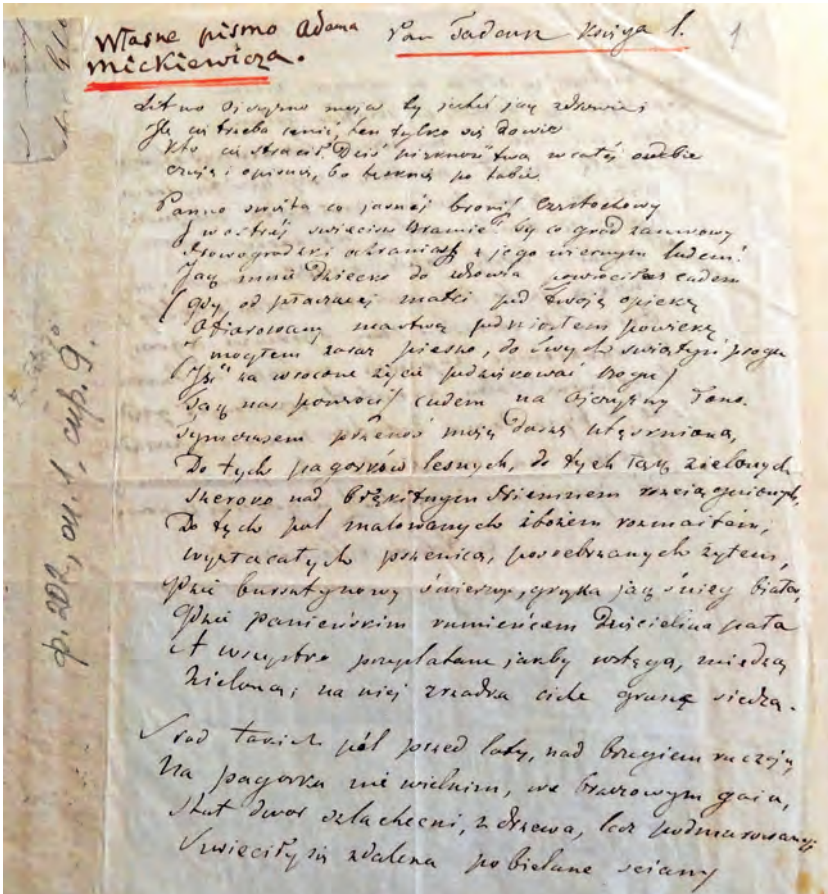 Własne pismo Adama
Mickiewicza.
Pan Tadeusz Księga 1.
1
Litwo Ojczyzno moja ty jesteś jak zdrowie;
Ile cię trzeba cenić, ten tylko się dowie
Kto cię stracił. Dziś piękność twą w całej ozdobie
Czuję i opisuję, bo tęsknię po tobie.
Panno święta co jasnéj bronisz Częstochowy
I w ostréj świecisz Bramie! Ty co gród zamkowy
Nowogrodzki ochraniasz z jego wiernym ludem!
Jak mnie dziecko do zdrowia powróciłaś cudem
(Gdy od płaczącej matki pod Twoją opiekę
Ofiarowany martwą podniosłem powiekę
I mogłem zaraz pieszo, do Twych świątyń progu
Iść za wrócone życie podziękować Bogu)
Tak nas powrócisz cudem na Ojczyzny łono.
Tymczasem przenoś moją duszę utęsknioną,
Do tych pagórków leśnych, do tych łąk zielonych
Szeroko nad błękitnym Niemnem rozciągnionych,
Do tych pól malowanych zbożem rozmaitém,
Wyzłacanych pszenicą, posrebrzanych żytem,
Gdzie bursztynowy świerzop, gryka jak śnieg biała,
Gdzie panieńskim rumieńcem dzięcielina pała
A wszystko przeplatane jakby wstęgą, miedzą
Zieloną; na niéj zrzadka ciche grusze siedzą.
Środ takich pól przed laty, nad brzegiem ruczaju,
Na pagórku niewielkim, we brzozowym gaju,
Stał dwor szlachecki, z drzewa, lecz podmurowany
Swieciły się zdaleka pobielane sciany
ф. 202, оп. 1, стр. 9.